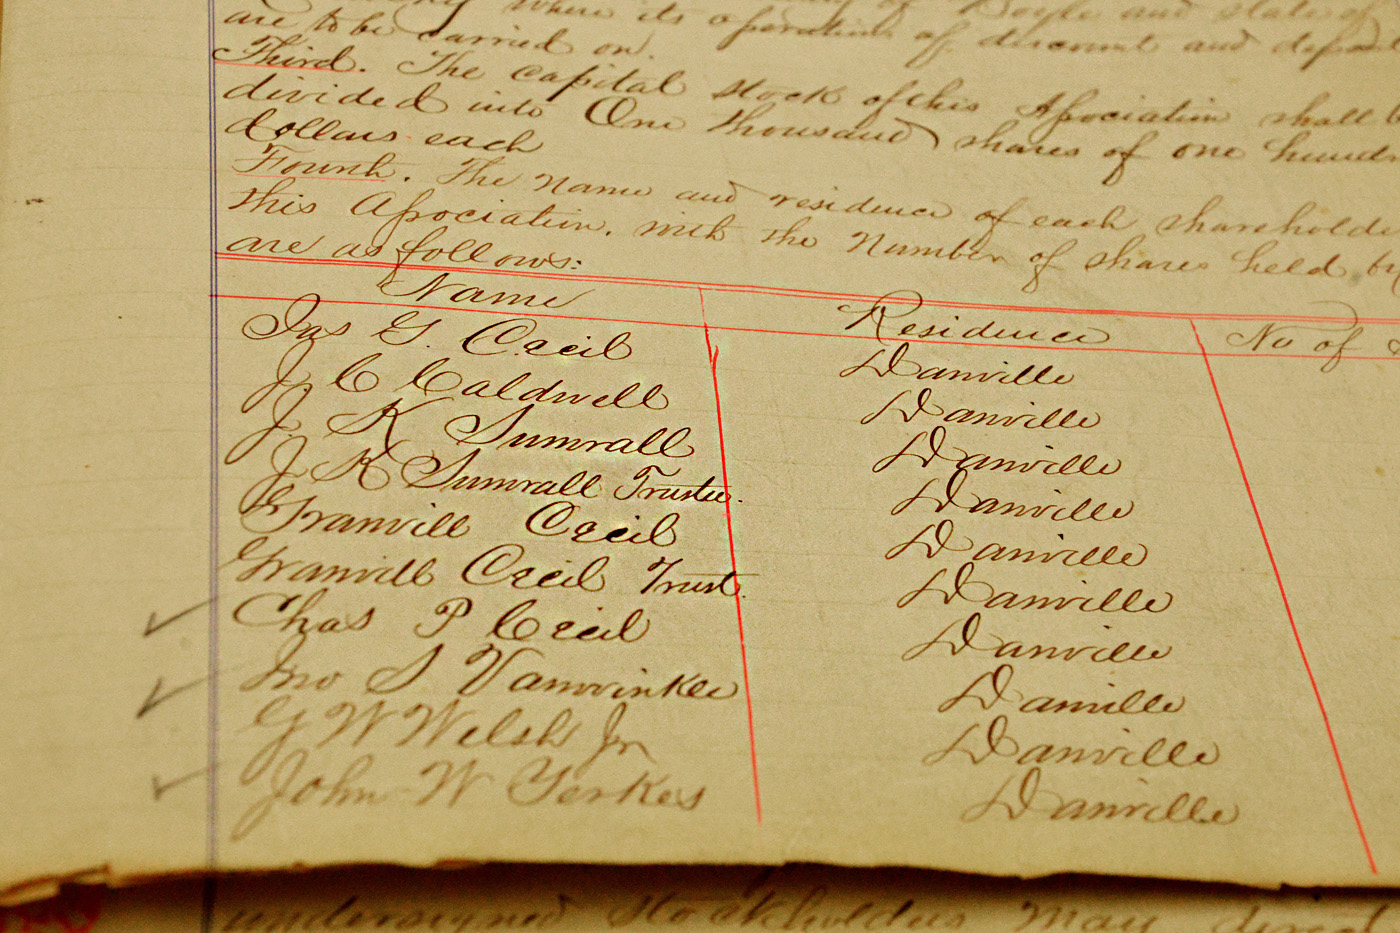 where its operations of discount and
of Boyle and State of
are to be carried on.
Third. The capital stock of this Association shall
divided into One thousand shares of one
dollars each
Fourth. The name and residence of each
this Association, with the Number of shares held by
are as follows:
Name Residence No of
Jas G. Cecil Danville
J C Caldwell Danville
J K Sumrall Danville
J K Sumrall Trustee. Danville
Granvill Cecil Danville
Granvill Cecil Trust. Danville
Chas P Cecil Danville
Jno S Vanwinkle Danville
G W Welsh Jr Danville
John W Yerkes Danville
undersigned Stockholders may